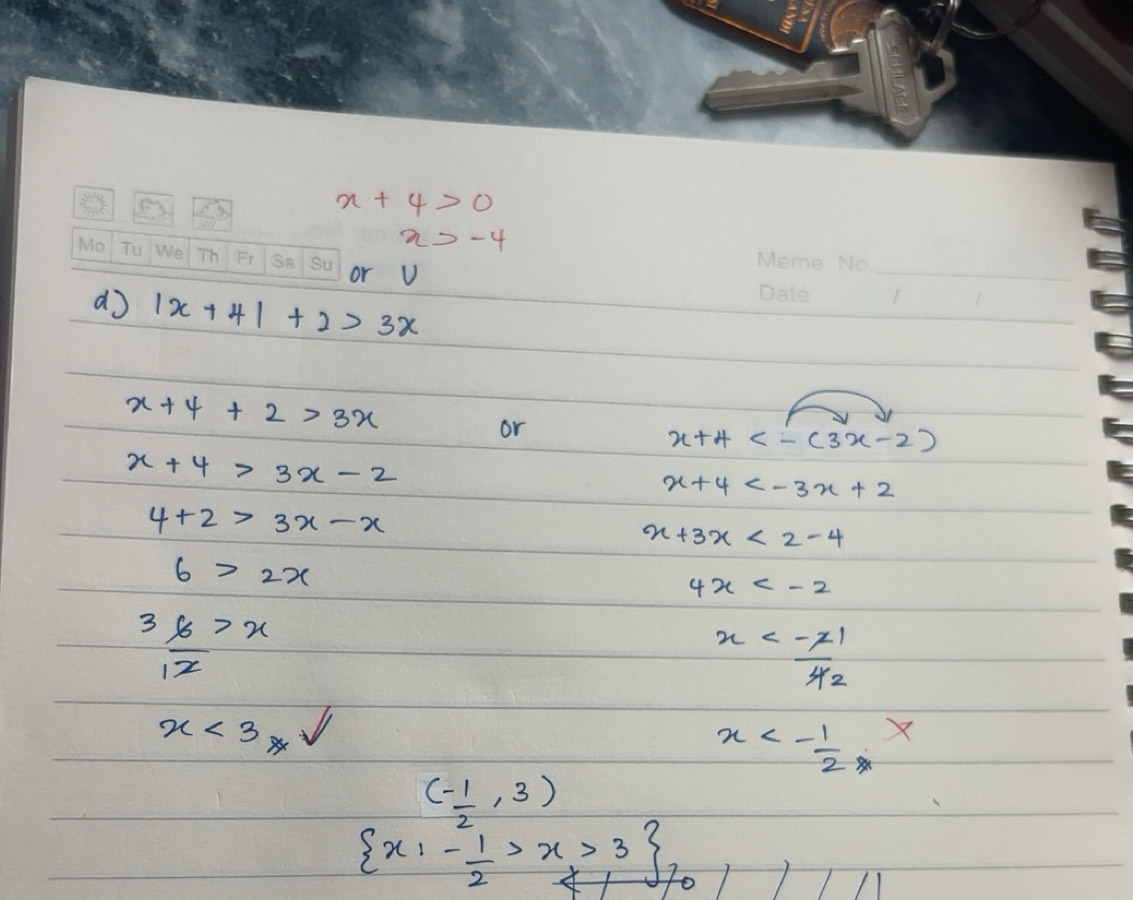 SCHLAGE
x + 4 > 0
x > -4
Mo Tu We Th Fr Sa Su
or U
Meme No.
Date / /
d) |x + 4| + 2 > 3x
x+4 + 2 > 3x or x+4 < -(3x-2)
x + 4 > 3x - 2 x+4 < -3x + 2
4+2 > 3x - x x+3x < 2-4
6 > 2x 4x < -2
3 6/2 1 > x x < -2/4 1 2
x < 3 ✓ x < -1/2 ✗
(-1/2, 3)
{x: -1/2 > x > 3}